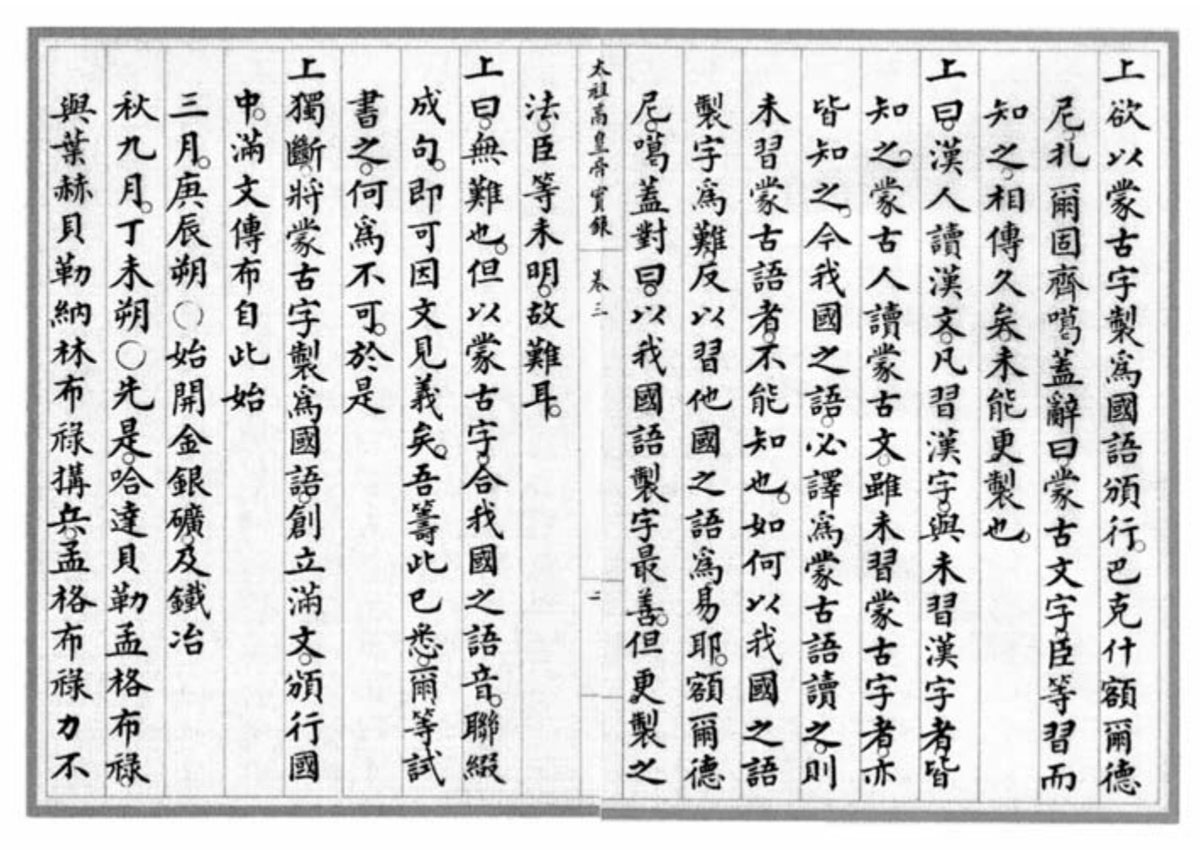 上欲以蒙古字製爲國語頒行。巴克什額爾德
尼。扎爾固齊噶蓋辭曰。蒙古文字。臣等習而
知之。相傳久矣。未能更製也。
上曰。漢人讀漢文。凡習漢字。與未習漢字者。皆
知之。蒙古人讀蒙古文。雖未習蒙古字者。亦
皆知之。今我國之語。必譯爲蒙古語讀之。則
未習蒙古語者。不能知也。如何以我國之語
製字爲難。反以習他國之語爲易耶。額爾德
尼。噶蓋對曰。以我國語製字最善。但更製之
太祖高皇帝實錄 卷三 二
法。臣等未明。故難耳。
上曰。無難也。但以蒙古字。合我國之語音。聯綴
成句。即可因文見義矣。吾籌此已悉。爾等試
書之。何爲不可。於是
上獨斷。將蒙古字製爲國語。創立滿文。頒行國
中。滿文傳布自此始
三月。庚辰朔○始開金銀礦。及鐵冶
秋九月。丁未朔○先是。哈達貝勒孟格布祿。
與葉赫貝勒納林布祿搆兵。孟格布祿力不